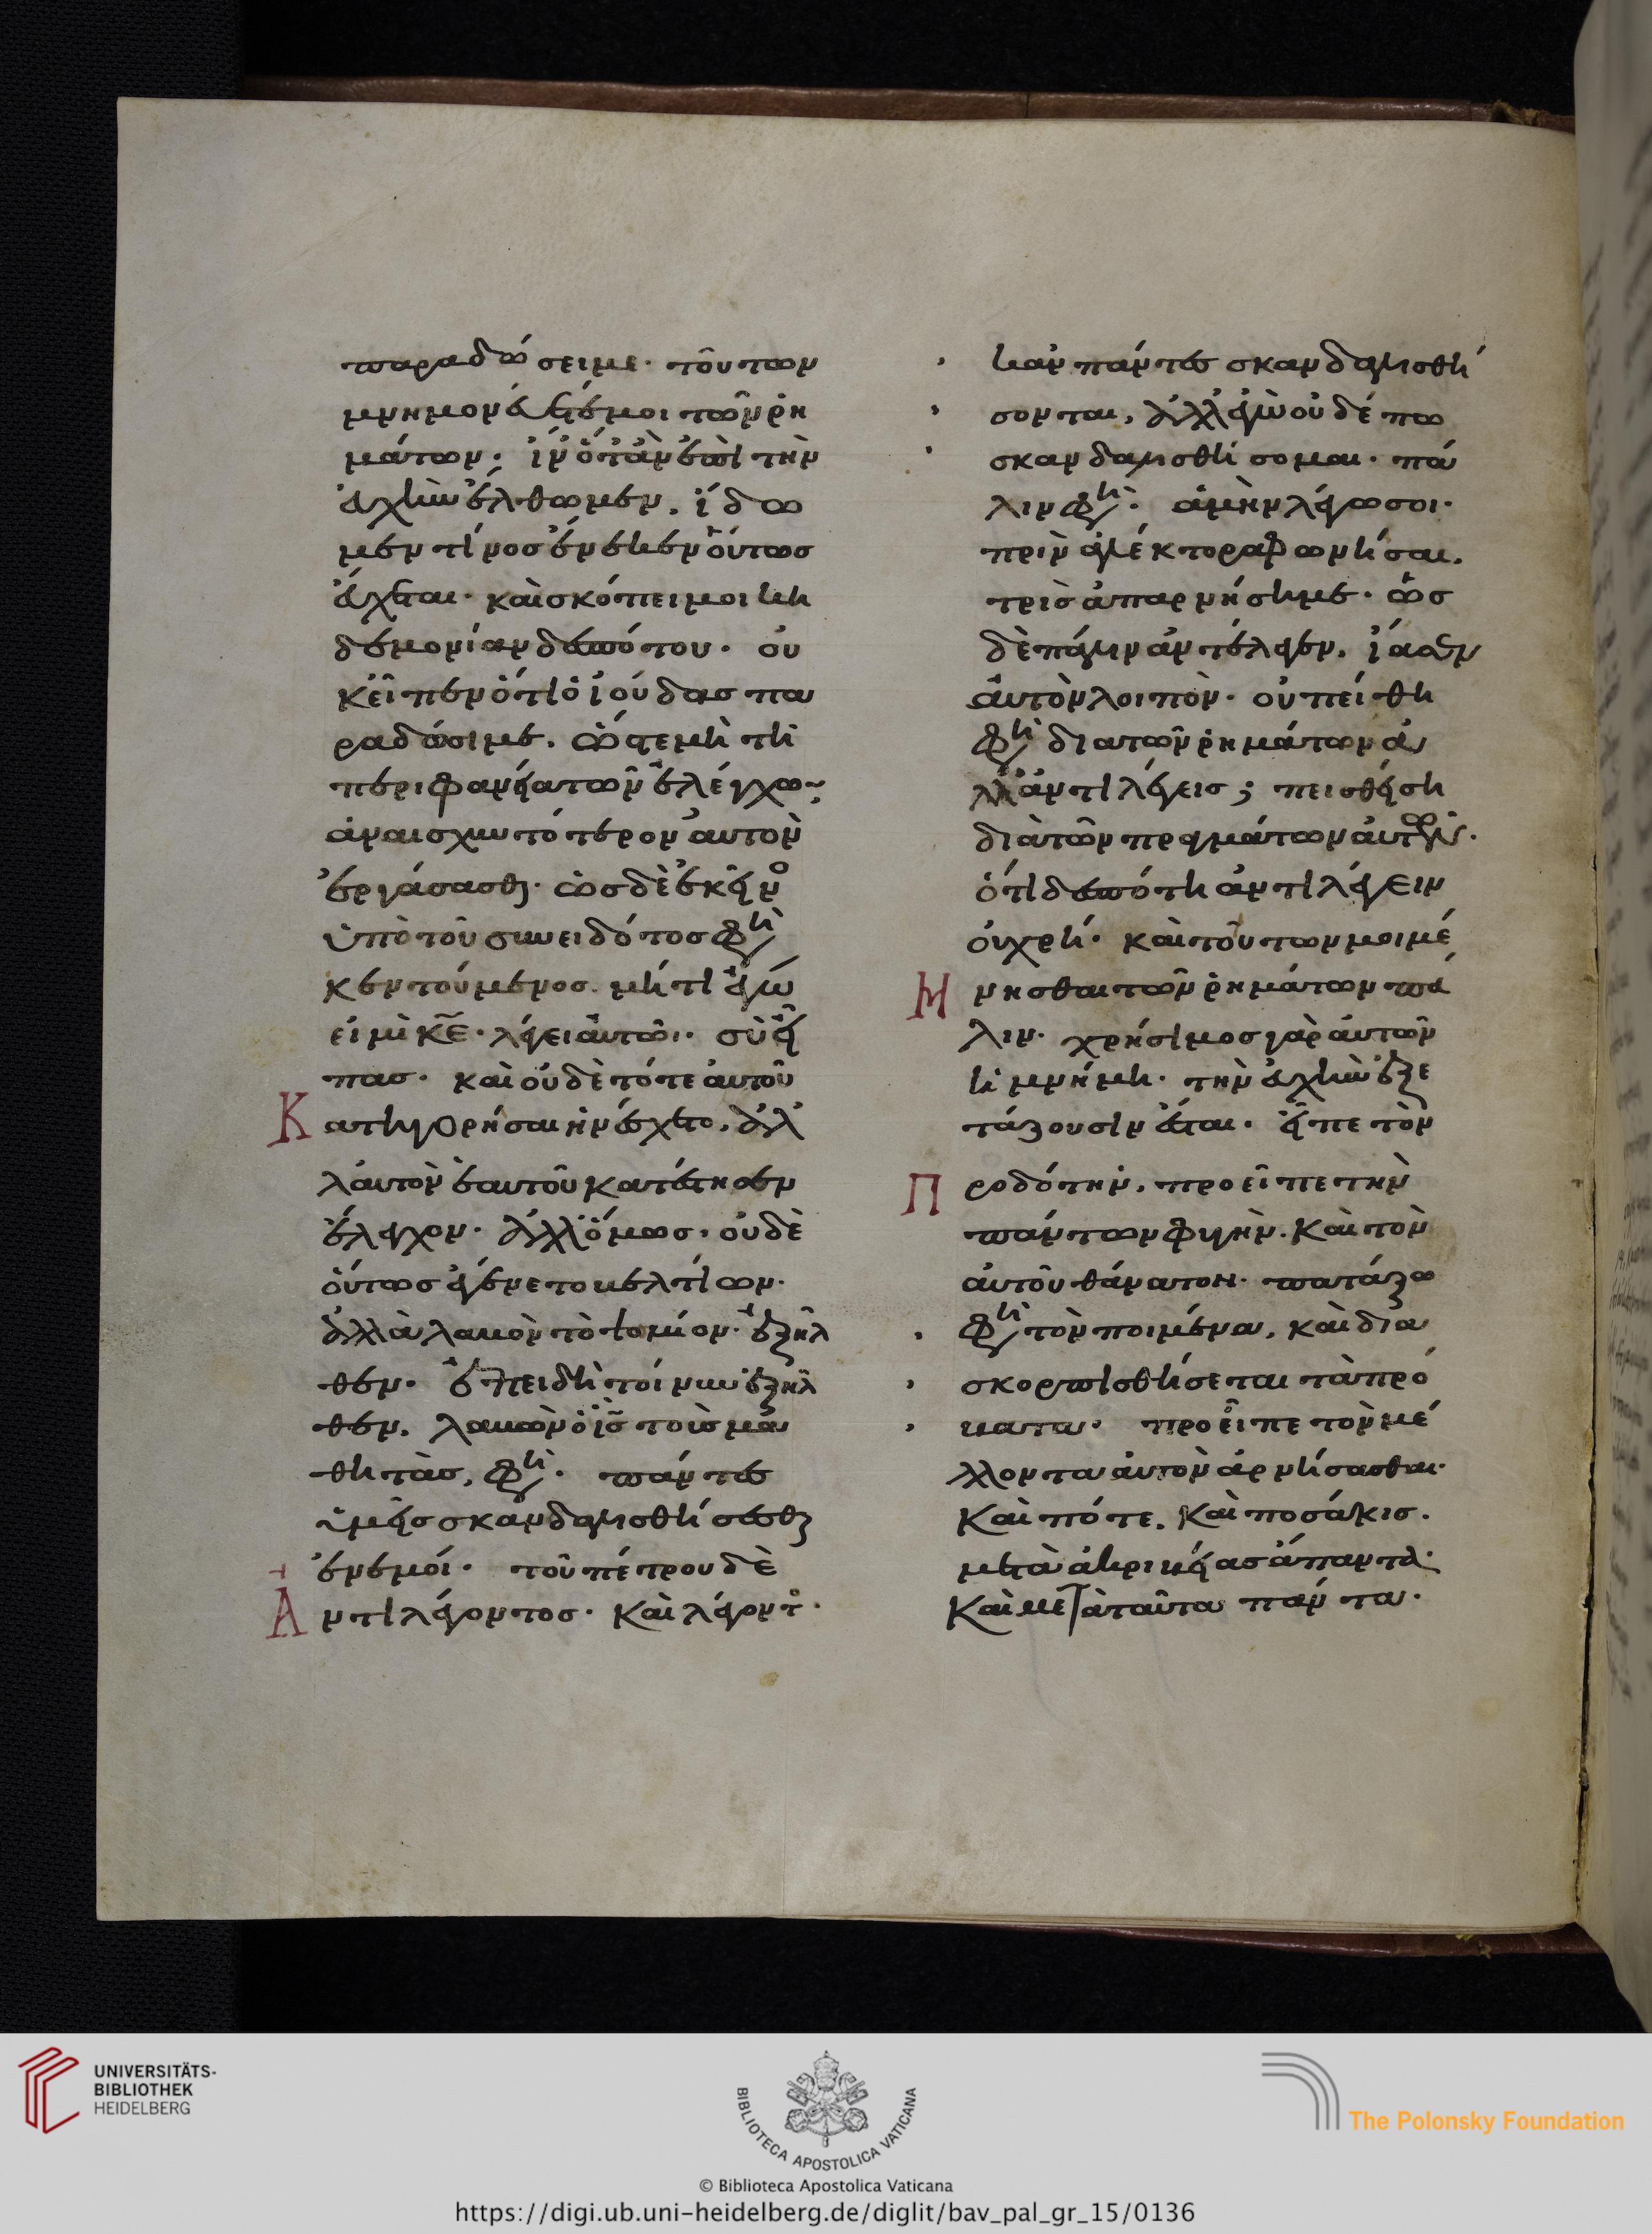 παραδώσει με· τούτων
μνημόνευέ μοι τῶν ῥη
μάτων· ἵν' ὅταν ἐπὶ τὴν
εὐχὴν ἔλθωμεν, ἴδω
μεν τίνος ἕνεκεν οὕτως
εὔχεται· καὶ σκόπει μοι κη
δεμονίαν δεσπότου· οὐ
κ εἶπεν ὅτι ὁ ἰούδας πα
ραδώσι με, ὥστε μὴ τῆ
περιφανεία τῶν ἐλέγχων
ἀναισχυντότερον αὐτὸν
ἐργάσασθαι· ὡς δὲ ἐκεῖνος
ὑπὸ τοῦ συνειδότος φησὶ
κεντούμενος· μήτι ἐγώ
εἰμὶ κε· λέγει αὐτῶ· σὺ εἶ
πας· καὶ οὐδὲ τότε αὐτοῦ
Κατηγορῆσαι ἠνέσχετο, ἀλ
λ' αὐτὸν ἑαυτοῦ κατέστησεν
ἔλεγχον· ἀλλ' ὅμως· οὐδὲ
οὕτως ἐγένετο βελτίων·
ἀλλὰ λαβὸν τὸ ψωμίον· ἐξῆλ
θεν· ἐπειδὴ τοίνυν ἐξῆλ
θεν, λαβὼν ὁ ις τοὺς μα
θητὰς, φησὶ· πάντες
ὑμεῖς σκανδαλισθήσεσθε
ἐν ἐμοί· τοῦ πέτρου δὲ
Αντιλέγοντος· καὶ λέγοντος·
κἂν πάντες σκανδαλισθή
σονται, ἀλλ' ἐγὼ οὐδέπω
σκανδαλισθήσομαι· πά
λιν φησὶ· ἀμὴν λέγω σοι·
πρὶν ἀλέκτορα φωνῆσαι,
τρὶς ἀπαρνήση με· ὡς
δὲ πάλιν ἀντέλεγεν, ἴασεν
αὐτὸν λοιπὸν· οὐ πείθη
φησὶ δια τῶν ῥημάτων ἀ
λλ' ἀντιλέγεις; πεισθήση
διὰ τῶν πραγμάτων αὐτῶν·
ὅτι δεσπότη ἀντιλέγειν
οὐ χρή· καὶ τούτων μοι μέ
Μ νησθαι τῶν ῥημάτων πά
λιν· χρήσιμος γὰρ αὐτῶν
ἡ μνήμη· τὴν εὐχὴν ἐξε
τάζουσιν ἔσται· εἶπε τὸν
Προδότην, προεῖπε τὴν
πάντων φυγὴν· καὶ τὸν
αὐτοῦ θάνατον· πατάξω
φησὶ τὸν ποιμένα, καὶ δια
σκορπισθήσεται τὰ πρό
βατα· προεῖπε τὸν μέ
λλοντα αὐτὸν ἀρνήσασθαι·
καὶ πότε, καὶ ποσάκις·
μετὰ ἀκριβείας ἅπαντα·
καὶ μετὰ ταῦτα πάντα·
UNIVERSITÄTS-
BIBLIOTHEK
HEIDELBERG
BIBLIOTECA APOSTOLICA VATICANA
© Biblioteca Apostolica Vaticana
The Polonsky Foundation
https://digi.ub.uni-heidelberg.de/diglit/bav_pal_gr_15/0136